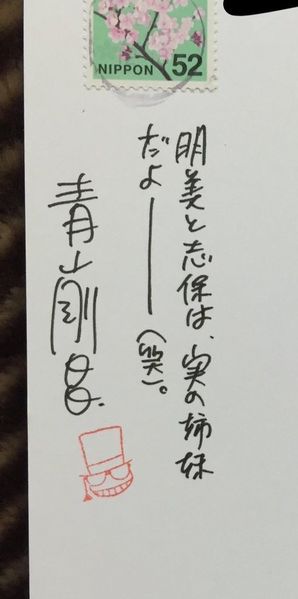 NIPPON 52
明美と志保は、実の姉妹
だよ━━━(笑)。
青山剛昌.